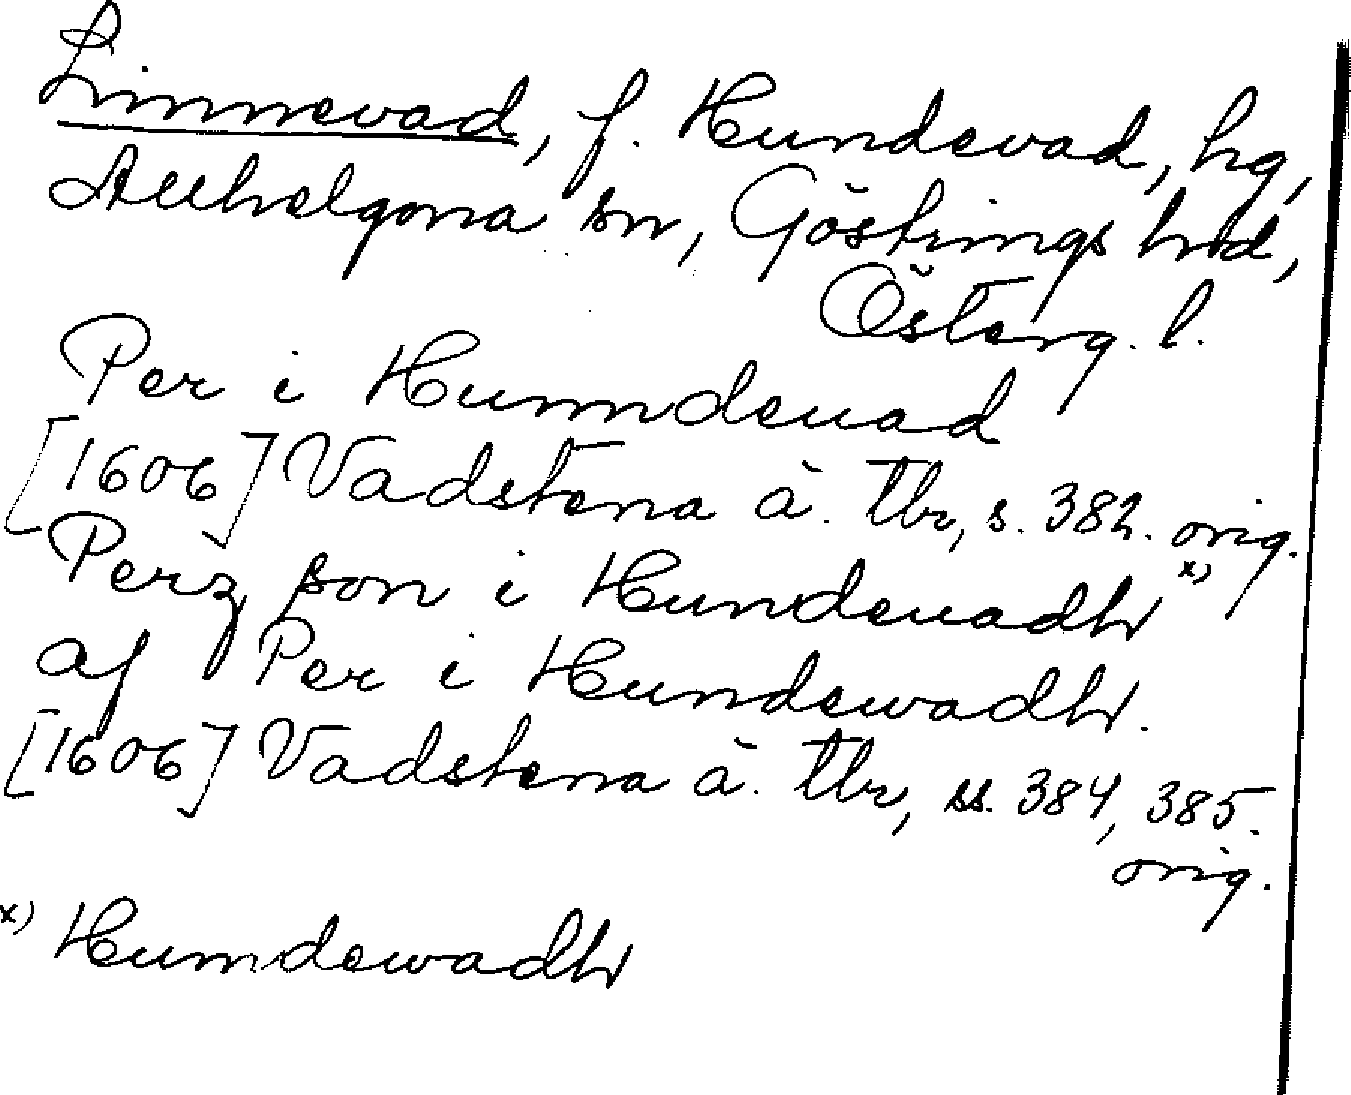 Linnevad, f. Hundevad, hg,
Allhelgona sn, Göstrings hd,
Österg. l.
Per i Hunndeuad
[1606] Vadstena ä. tbr, s. 382. orig.
Perz son i Hundeuadh x)
af Per i Hundewadh.
[1606] Vadstena ä. tbr, ss. 384, 385.
orig.
x) Humdewadh